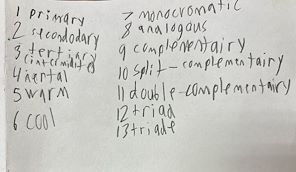 1 primary
2 secondodary
3 tertiary
4 nental
5 warm
6 cool
7 monocromatic
8 analogous
9 complementairy
10 split-complementairy
11 double-complementairy
12 triad
13 triade